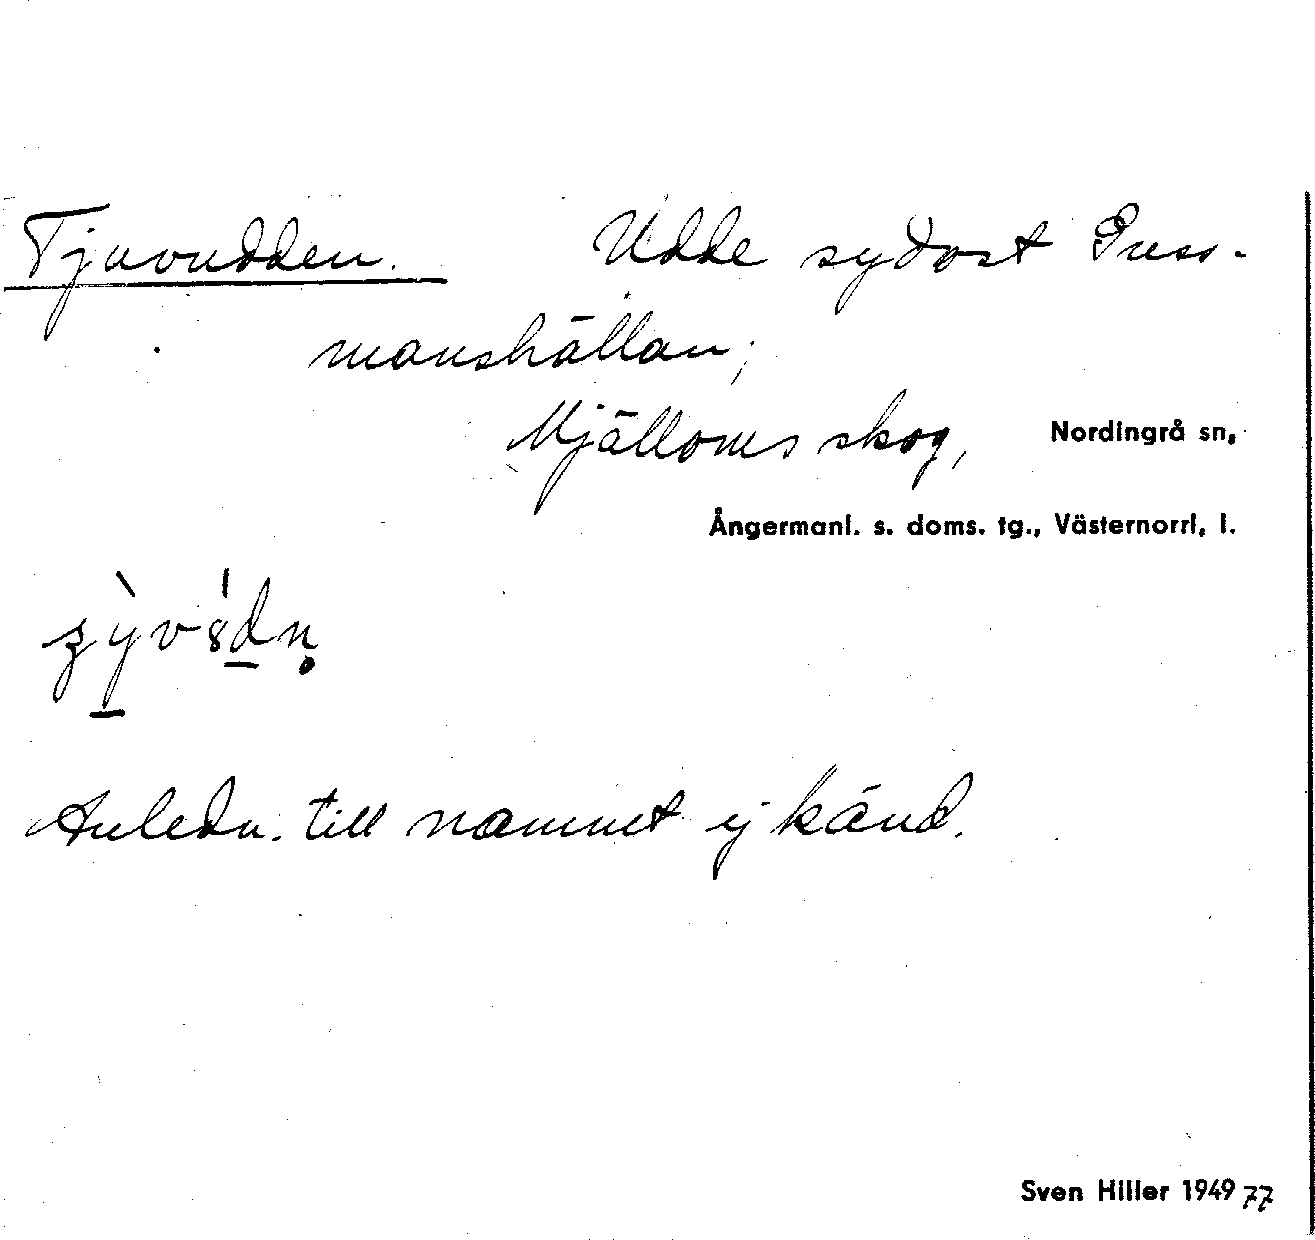 Tjuvudden. Udde sydost Puss-
manshällan;
Mjälloms skog, Nordingrå sn,
Ångermanl. s. doms. tg., Västernorrl. l.
Anledn. till namnet ej känd.
Sven Hiller 1949 77